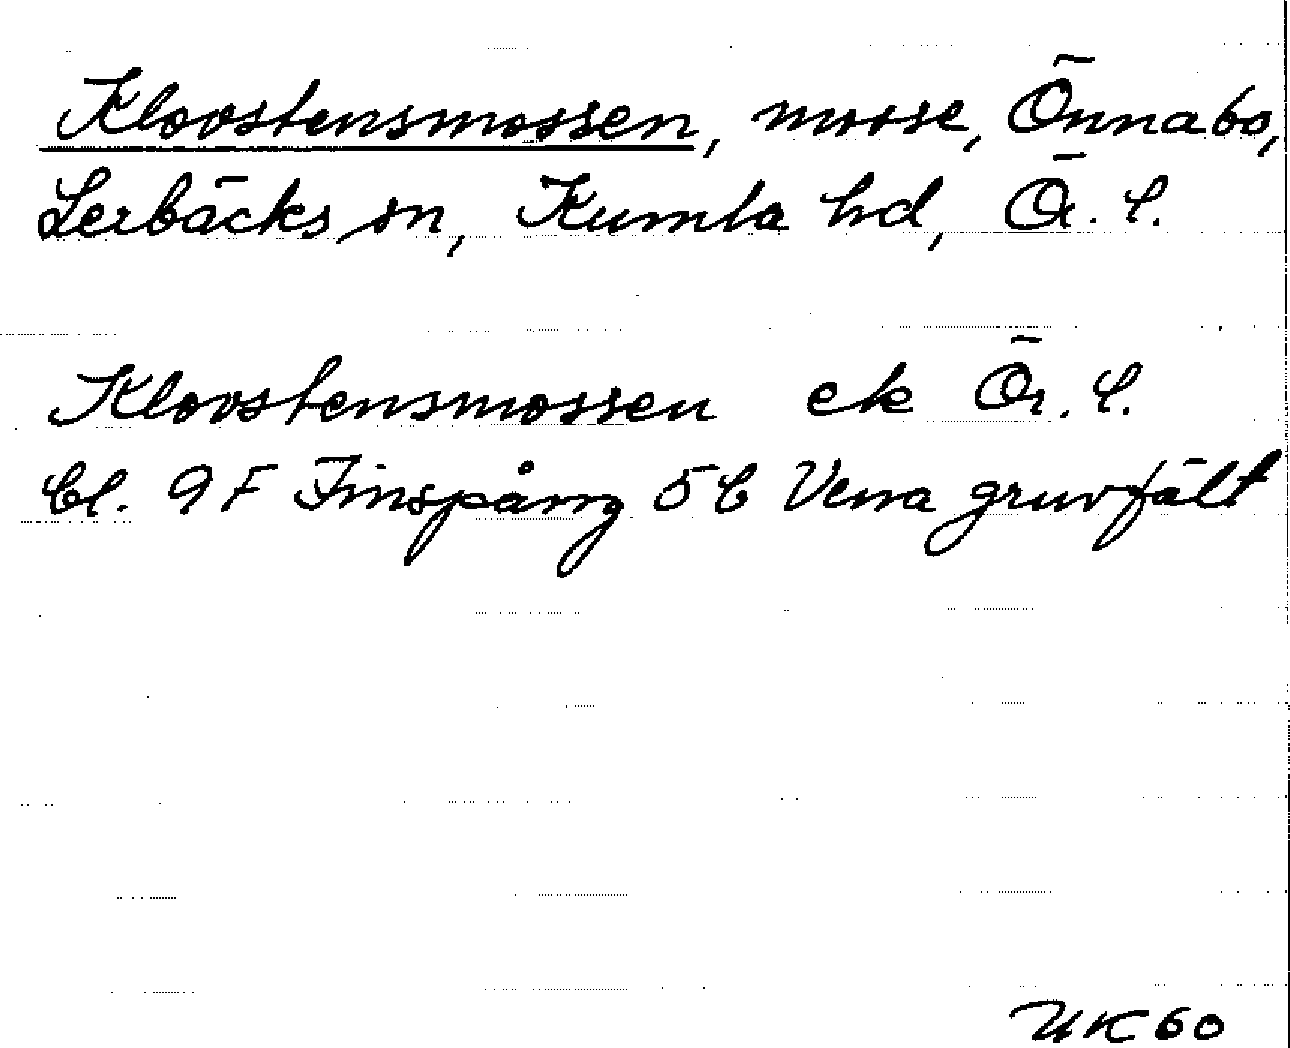 Klovstensmossen, mosse, Önnabo,
Lerbäcks sn, Kumla hd, Ör. l.
Klovstensmossen ek Ör. l.
bl. 9F Finspång 5b Vena gruvfält
UK60